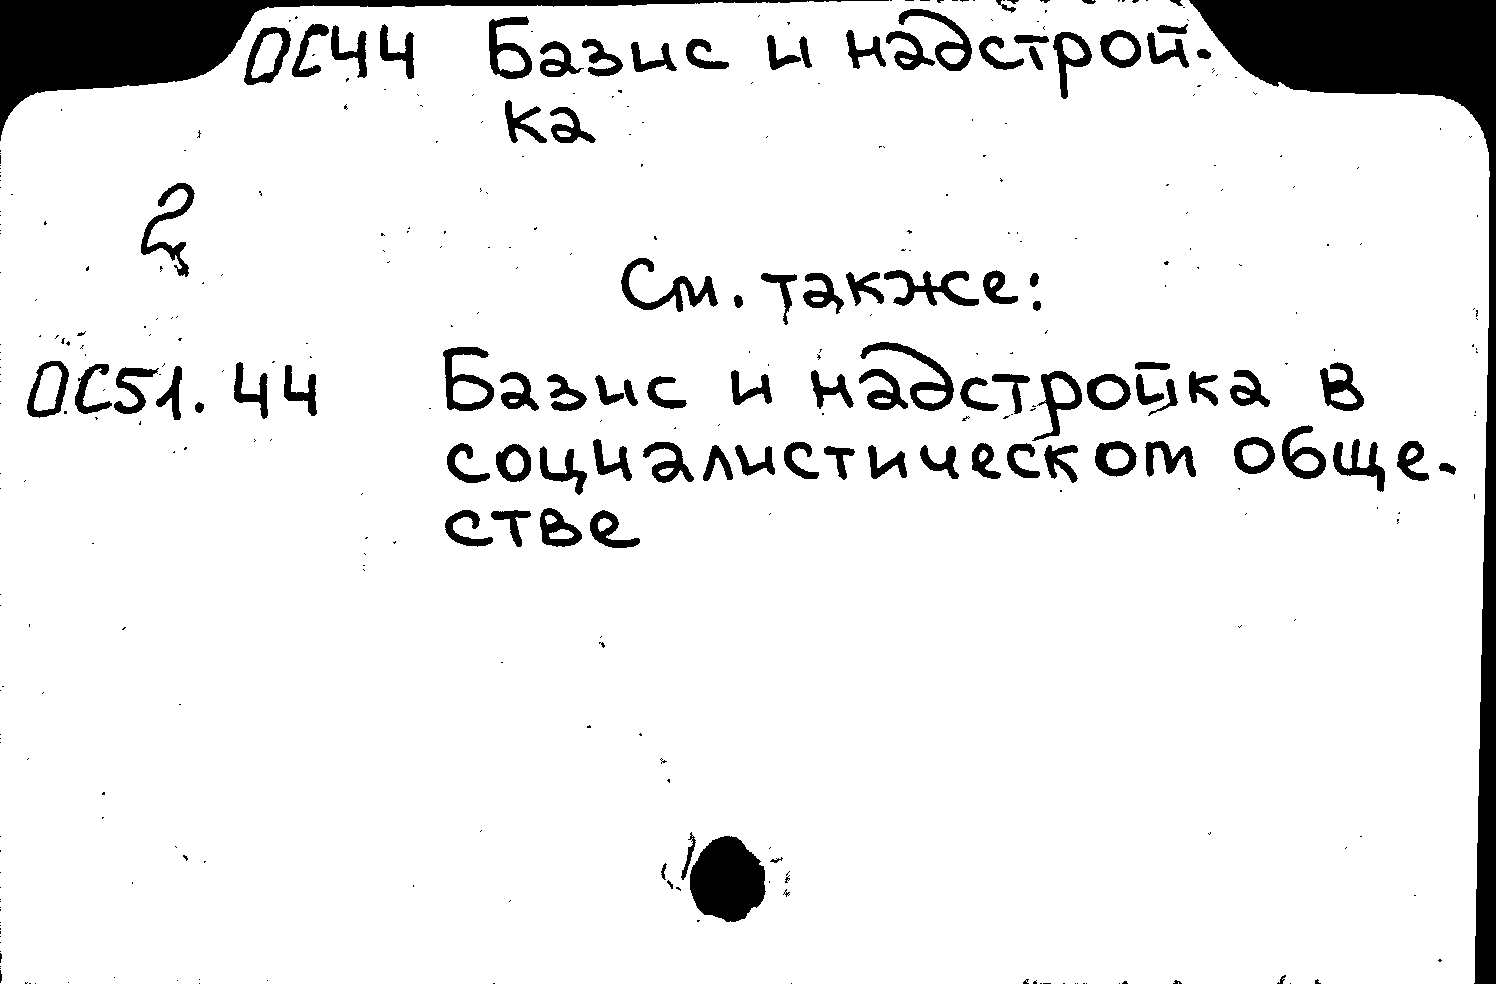 ОС44 Базис и надстрой-
ка
2
См. также:
ОС51.44 Базис и надстройка в
социалистическом обще-
стве